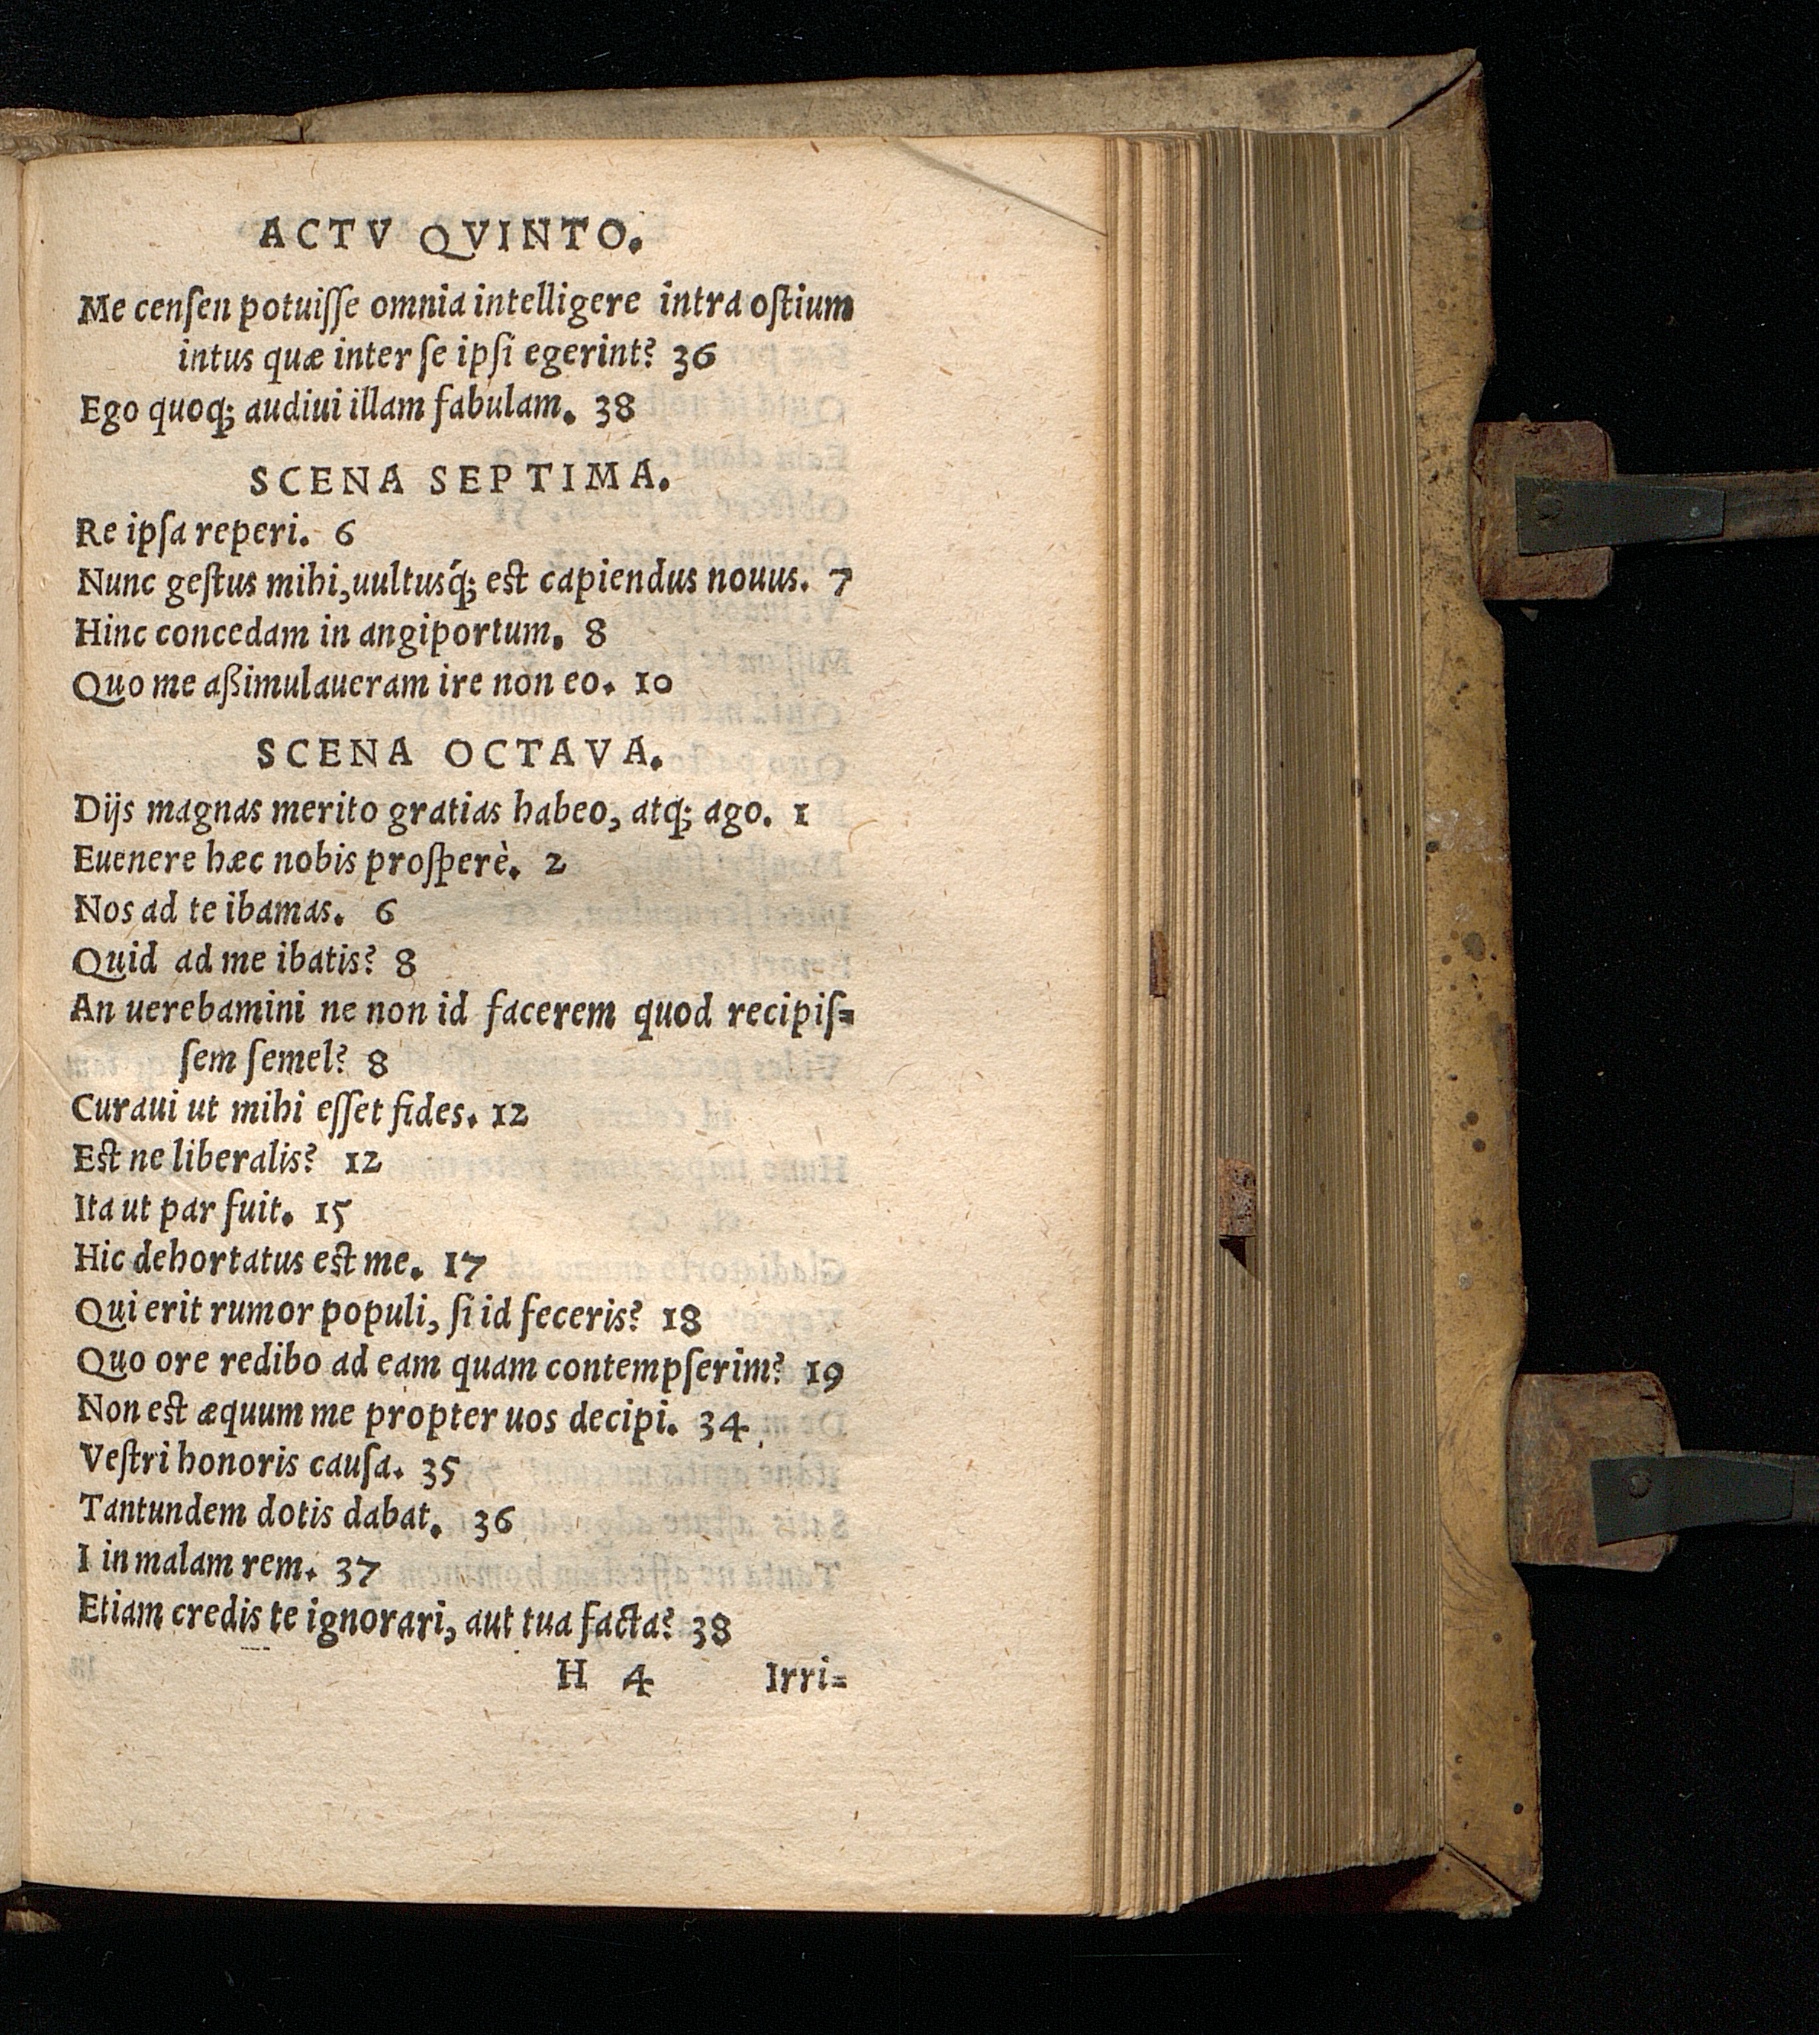 ACTV QVINTO.
Me cenſen potuiſſe omnia intelligere intra oſtium
intus quæ inter ſe ipſi egerint? 36
Ego quoq; audiui illam fabulam. 38
SCENA SEPTIMA.
Re ipſa reperi. 6
Nunc geſtus mihi, uultusq́; est capiendus nouus. 7
Hinc concedam in angiportum. 8
Quo me aßimulaueram ire non eo. 10
SCENA OCTAVA.
Dijs magnas merito gratias habeo, atq; ago. 1
Euenere hæc nobis proſperè. 2
Nos ad te ibamas. 6
Quid ad me ibatis? 8
An uerebamini ne non id facerem quod recipiſ=
ſem ſemel? 8
Curaui ut mihi eſſet fides. 12
Est ne liberalis? 12
Ita ut par fuit. 15
Hic dehortatus est me. 17
Qui erit rumor populi, ſi id feceris? 18
Quo ore redibo ad eam quam contempſerim? 19
Non est æquum me propter uos decipi. 34
Veſtri honoris cauſa. 35
Tantundem dotis dabat. 36
I in malam rem. 37
Etiam credis te ignorari, aut tua facta? 38
H 4 Irri=